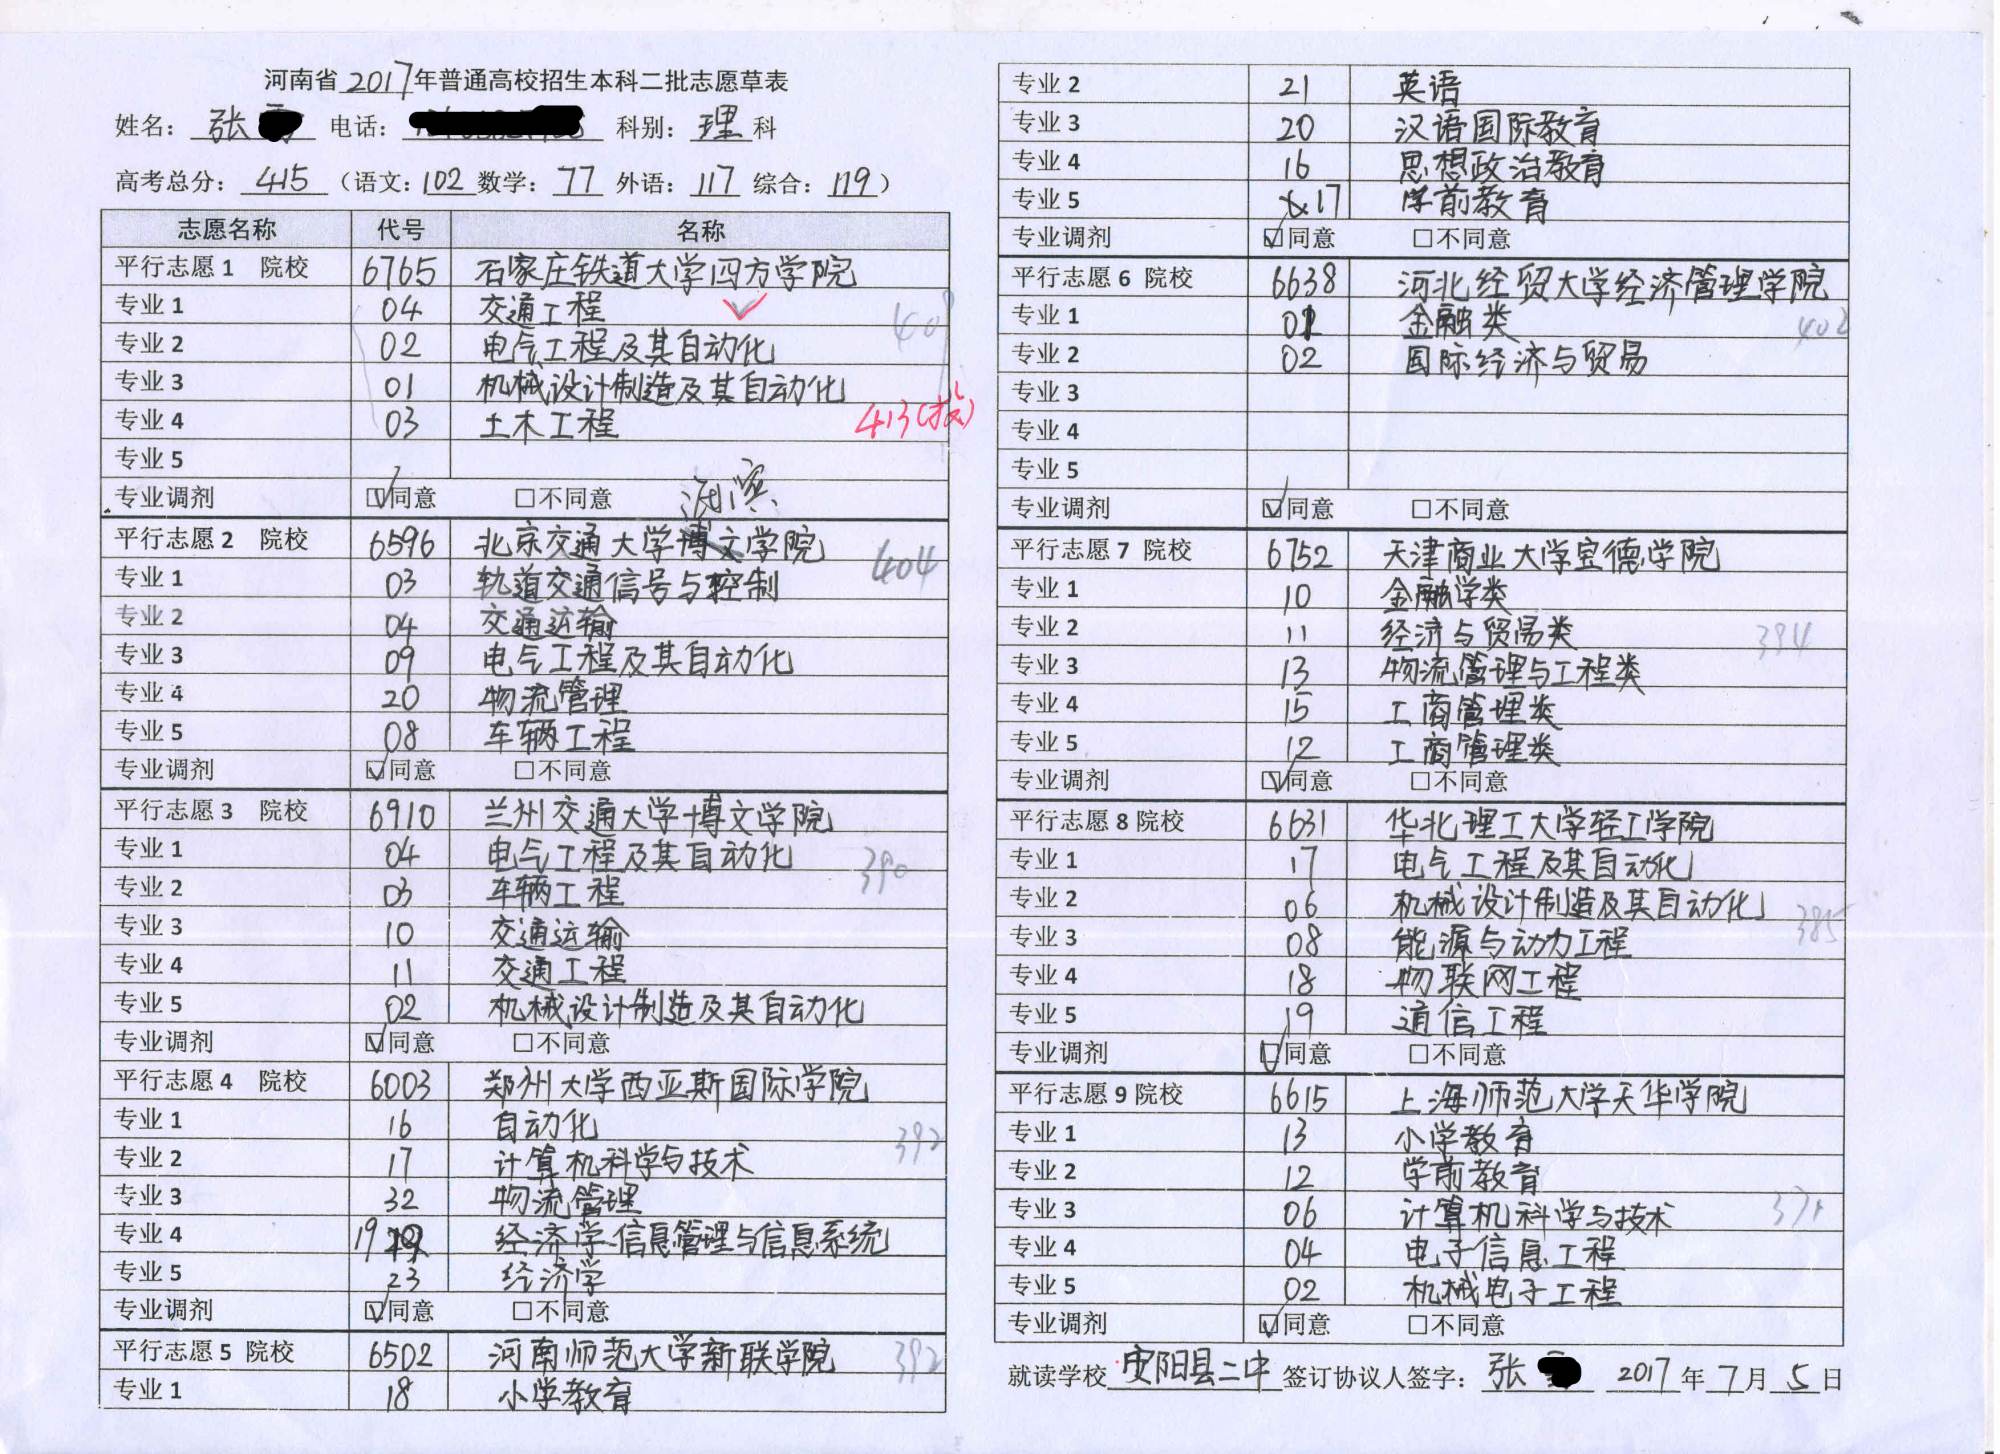 河南省2017年普通高校招生本科二批志愿草表
姓名：张 电话： 科别：理科
高考总分：415（语文：102数学：77外语：117综合：119）
志愿名称 代号 名称
平行志愿1 院校 6765 石家庄铁道大学四方学院
专业1 04 交通工程
专业2 02 电气工程及其自动化
专业3 01 机械设计制造及其自动化
专业4 03 土木工程 413(投)
专业5
专业调剂 ☑同意 □不同意
海滨
平行志愿2 院校 6596 北京交通大学博文学院 404
专业1 03 轨道交通信号与控制
专业2 04 交通运输
专业3 09 电气工程及其自动化
专业4 20 物流管理
专业5 08 车辆工程
专业调剂 ☑同意 □不同意
平行志愿3 院校 6910 兰州交通大学博文学院
专业1 04 电气工程及其自动化 390
专业2 03 车辆工程
专业3 10 交通运输
专业4 11 交通工程
专业5 02 机械设计制造及其自动化
专业调剂 ☑同意 □不同意
平行志愿4 院校 6003 郑州大学西亚斯国际学院
专业1 16 自动化 392
专业2 17 计算机科学与技术
专业3 32 物流管理
专业4 19 经济学 信息管理与信息系统
专业5 23 经济学
专业调剂 ☑同意 □不同意
平行志愿5 院校 6502 河南师范大学新联学院 392
专业1 18 小学教育
专业2 21 英语
专业3 20 汉语国际教育
专业4 16 思想政治教育
专业5 17 学前教育
专业调剂 ☑同意 □不同意
平行志愿6 院校 6638 河北经贸大学经济管理学院
专业1 01 金融类 402
专业2 02 国际经济与贸易
专业3
专业4
专业5
专业调剂 ☑同意 □不同意
平行志愿7 院校 6752 天津商业大学宝德学院
专业1 10 金融学类
专业2 11 经济与贸易类 394
专业3 13 物流管理与工程类
专业4 15 工商管理类
专业5 12 工商管理类
专业调剂 ☑同意 □不同意
平行志愿8 院校 6631 华北理工大学轻工学院
专业1 17 电气工程及其自动化
专业2 06 机械设计制造及其自动化 385
专业3 08 能源与动力工程
专业4 18 物联网工程
专业5 19 通信工程
专业调剂 ☑同意 □不同意
平行志愿9 院校 6615 上海师范大学天华学院
专业1 13 小学教育
专业2 12 学前教育
专业3 06 计算机科学与技术
专业4 04 电子信息工程
专业5 02 机械电子工程
专业调剂 ☑同意 □不同意
就读学校 安阳县二中 签订协议人签字：张 2017年7月5日